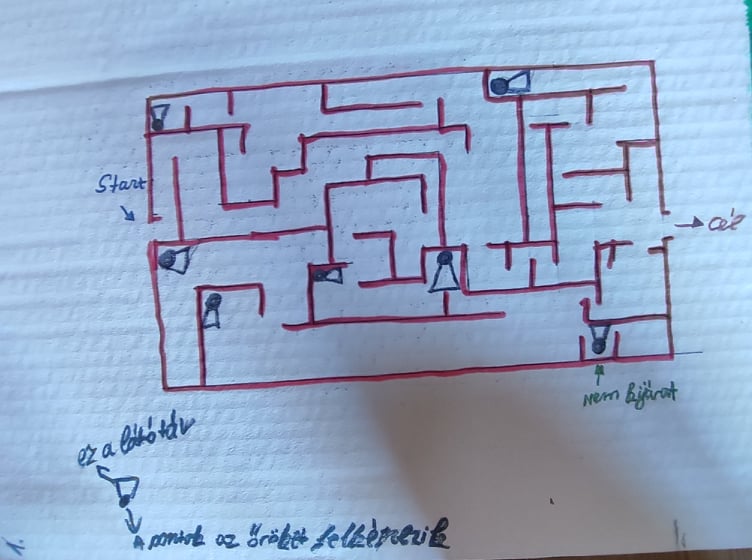 Start
→ cél
Nem kijárat
ez a látótáv
A pontok az őröket jelképezik
1.